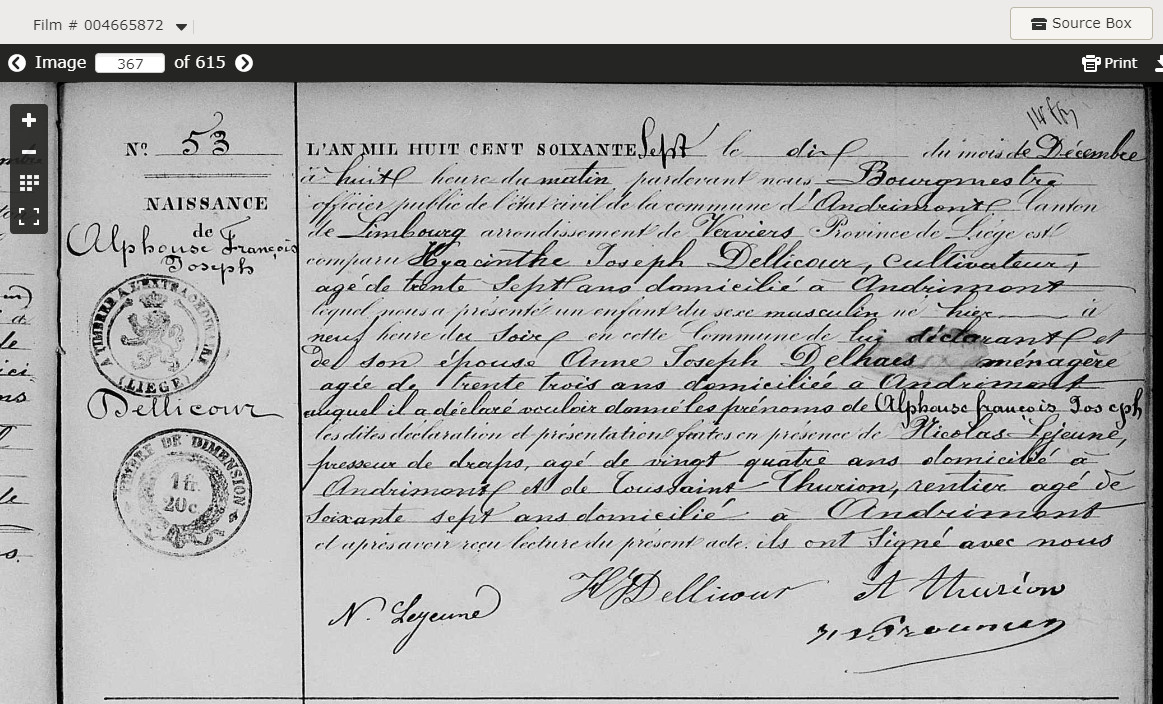 Film # 004665872
Source Box
Image 367 of 615
Print
Nº 53
NAISSANCE
de
Alphonse François
Joseph
TIMBRE A L'EXTRAORDINAIRE
(LIEGE)
Dellicour
TIMBRE DE DIMENSION
1 fr.
20c
L'AN MIL HUIT CENT SOIXANTE Sept le dix du mois de Décembre
à huit heure du matin pardevant nous Bourgmestre
officier public de l'état civil de la commune d'Andrimont Canton
de Limbourg arrondissement de Verviers Province de Liége est
comparu Hyacinthe Joseph Dellicour, cultivateur,
agé de trente Sept ans domicilié à Andrimont
lequel nous a présenté un enfant du sexe masculin né hier à
neuf heure du Soir en cette Commune de lui déclarant et
de son épouse Anne Joseph Delhaes ménagère
agée de trente trois ans domiciliée à Andrimont
auquel il a déclaré vouloir donné les prénoms de Alphonse françois Joseph
les dites déclaration et présentation faites en présence de Nicolas Lejeune,
presseur de draps, agé de vingt quatre ans domicilié à
Andrimont et de Toussaint Thurion, rentier agé de
Soixante sept ans domicilié à Andrimont
et après avoir reçu lecture du présent acte. ils ont Signé avec nous
N. Lejeune
H J Dellicour
A Thurion